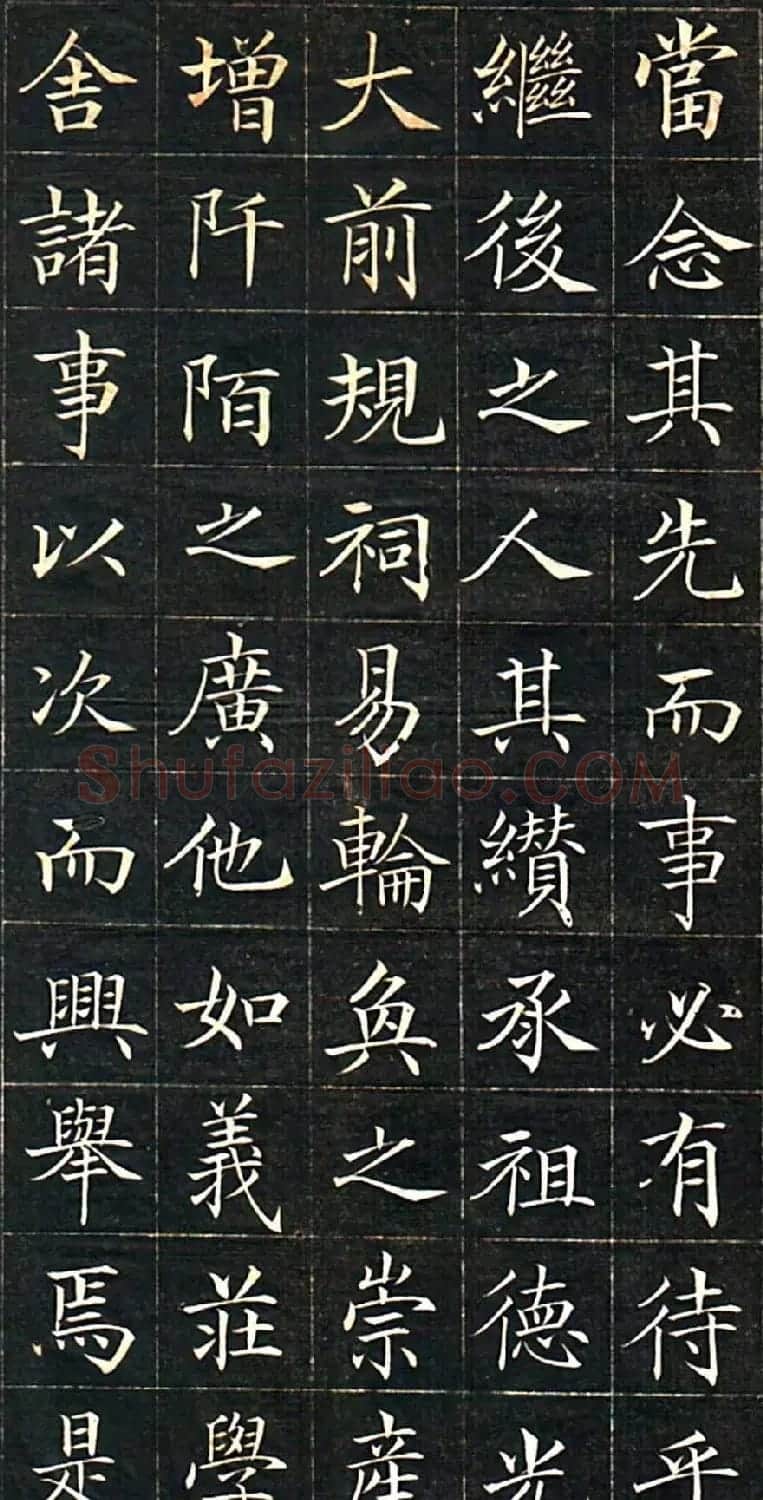 當念其先而事必有待乎
繼後之人其纘承祖德光
大前規祠易輪奐之崇産
增阡陌之廣他如義莊學
舍諸事以次而興舉焉是
Shufaziliao.COM